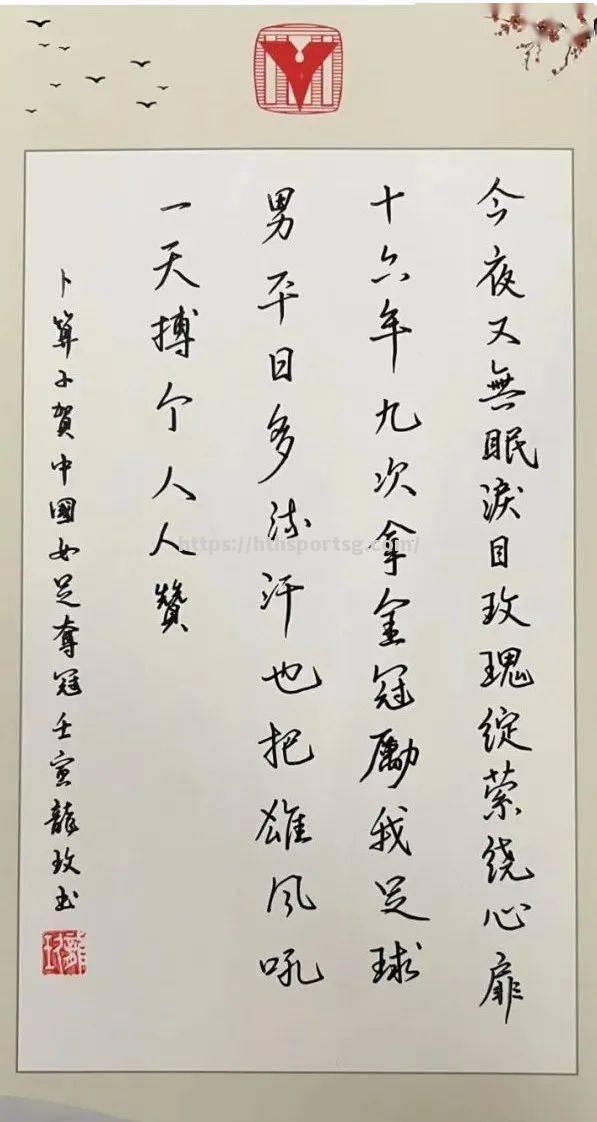 今夜又無眠淚目玫瑰綻萦绕心扉
十六年九次拿金冠勵我足球
男平日多流汗也把雄风吼
一天搏个人人贊
卜算子賀中國女足奪冠壬寅龍玫书
https://hthsportsg.com/